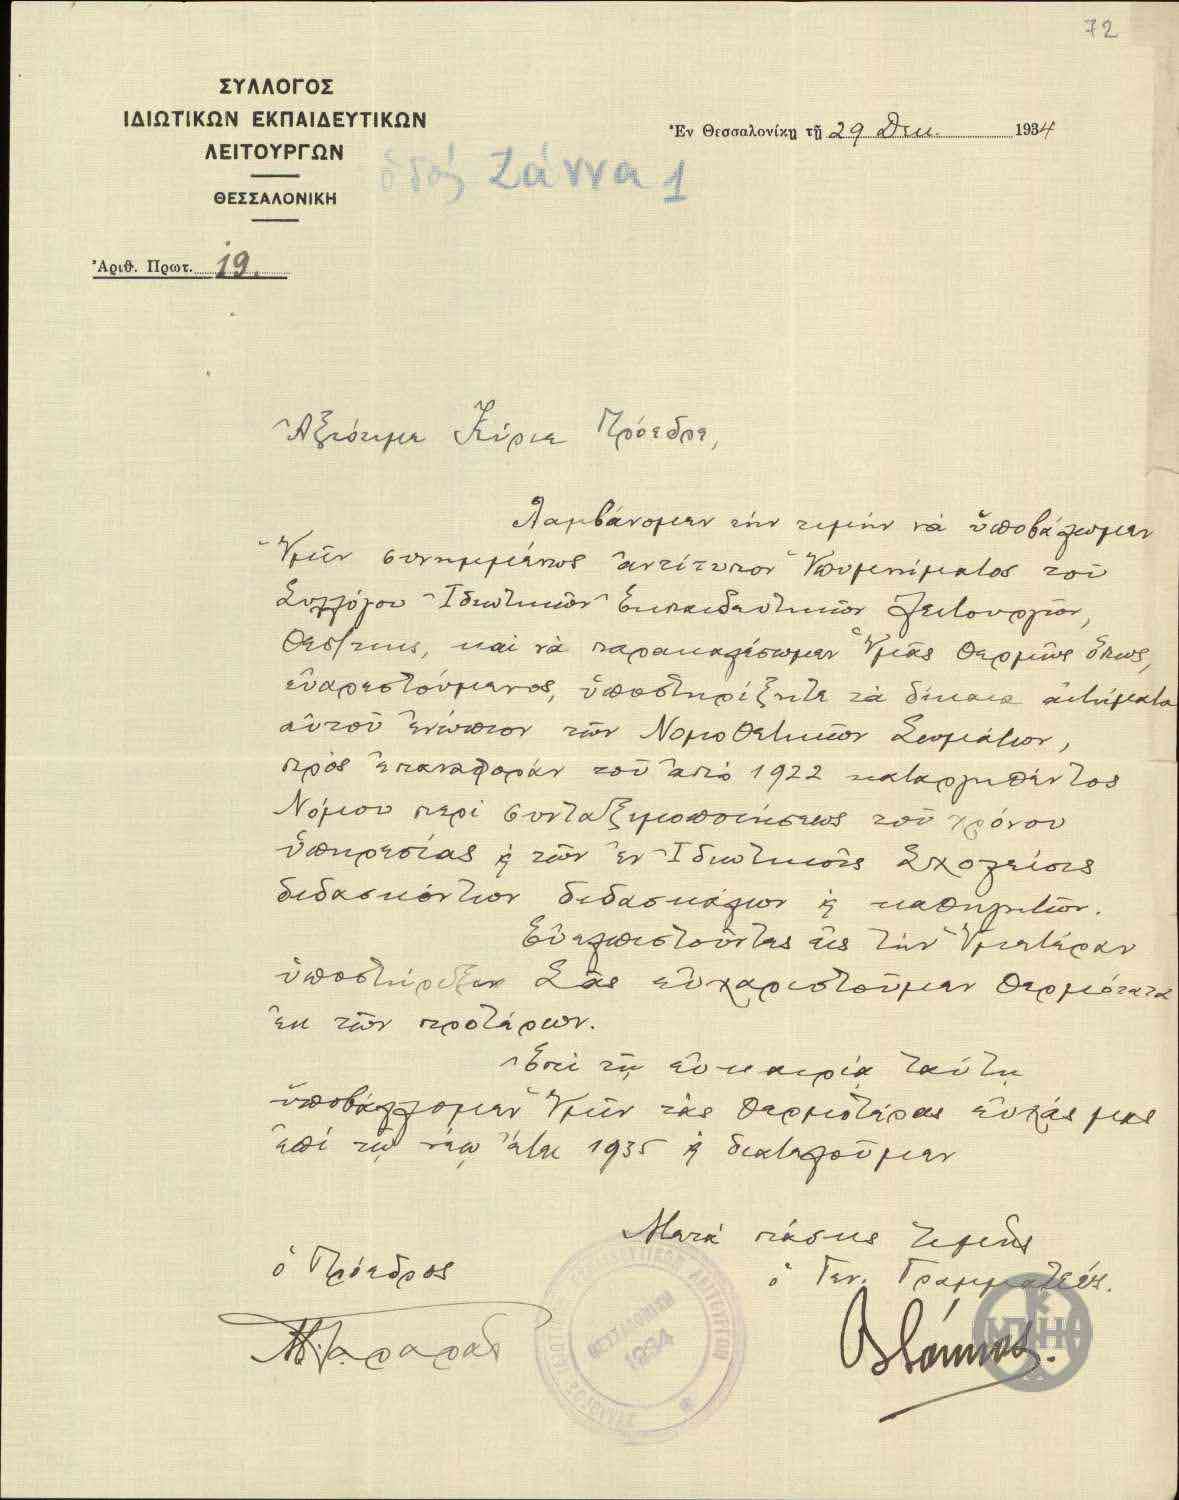 72
ΣΥΛΛΟΓΟΣ
ΙΔΙΩΤΙΚΩΝ ΕΚΠΑΙΔΕΥΤΙΚΩΝ
ΛΕΙΤΟΥΡΓΩΝ
ΘΕΣΣΑΛΟΝΙΚΗ
Ἐν Θεσσαλονίκῃ τῇ 29 Δεκ. 1934
ὁδός Ζάννα 1
Ἀριθ. Πρωτ. 19.
Ἀξιότιμε Κύριε Πρόεδρε,
Λαμβάνομεν τὴν τιμὴν νὰ ὑποβάλωμεν
Ὑμῖν συνημμένως ἀντίτυπον Ὑπομνήματος τοῦ
Συλλόγου Ἰδιωτικῶν Ἐκπαιδευτικῶν Λειτουργῶν,
Θεσ/νικης, καὶ νὰ παρακαλέσωμεν Ὑμᾶς θερμῶς ὅπως,
εὐαρεστούμενος, ὑποστηρίξητε τὰ δίκαια αἰτήματα
αὐτοῦ ἐνώπιον τῶν Νομοθετικῶν Σωμάτων,
πρὸς ἐπαναφορὰν τοῦ ἀπὸ 1922 καταργηθέντος
Νόμου περὶ συνταξιμοποιήσεως τοῦ χρόνου
ὑπηρεσίας ϗ τῶν ἐν Ἰδιωτικοῖς Σχολείοις
διδασκόντων διδασκάλων ϗ καθηγητῶν.
Εὐελπιστοῦντες εἰς τὴν Ὑμετέραν
ὑποστήριξιν Σᾶς εὐχαριστοῦμεν θερμότατα
ἐκ τῶν προτέρων.
Ἐπὶ τῇ εὐκαιρίᾳ ταύτῃ
ὑποβάλλομεν Ὑμῖν τὰς θερμοτέρας εὐχάς μας
ἐπὶ τῷ νέῳ ἔτει 1935 ϗ διατελοῦμεν
Μετὰ πάσης τιμῆς
ὁ Πρόεδρος
ὁ Γεν. Γραμματεύς.
ΘΕΣΣΑΛΟΝΙΚΗ
1934